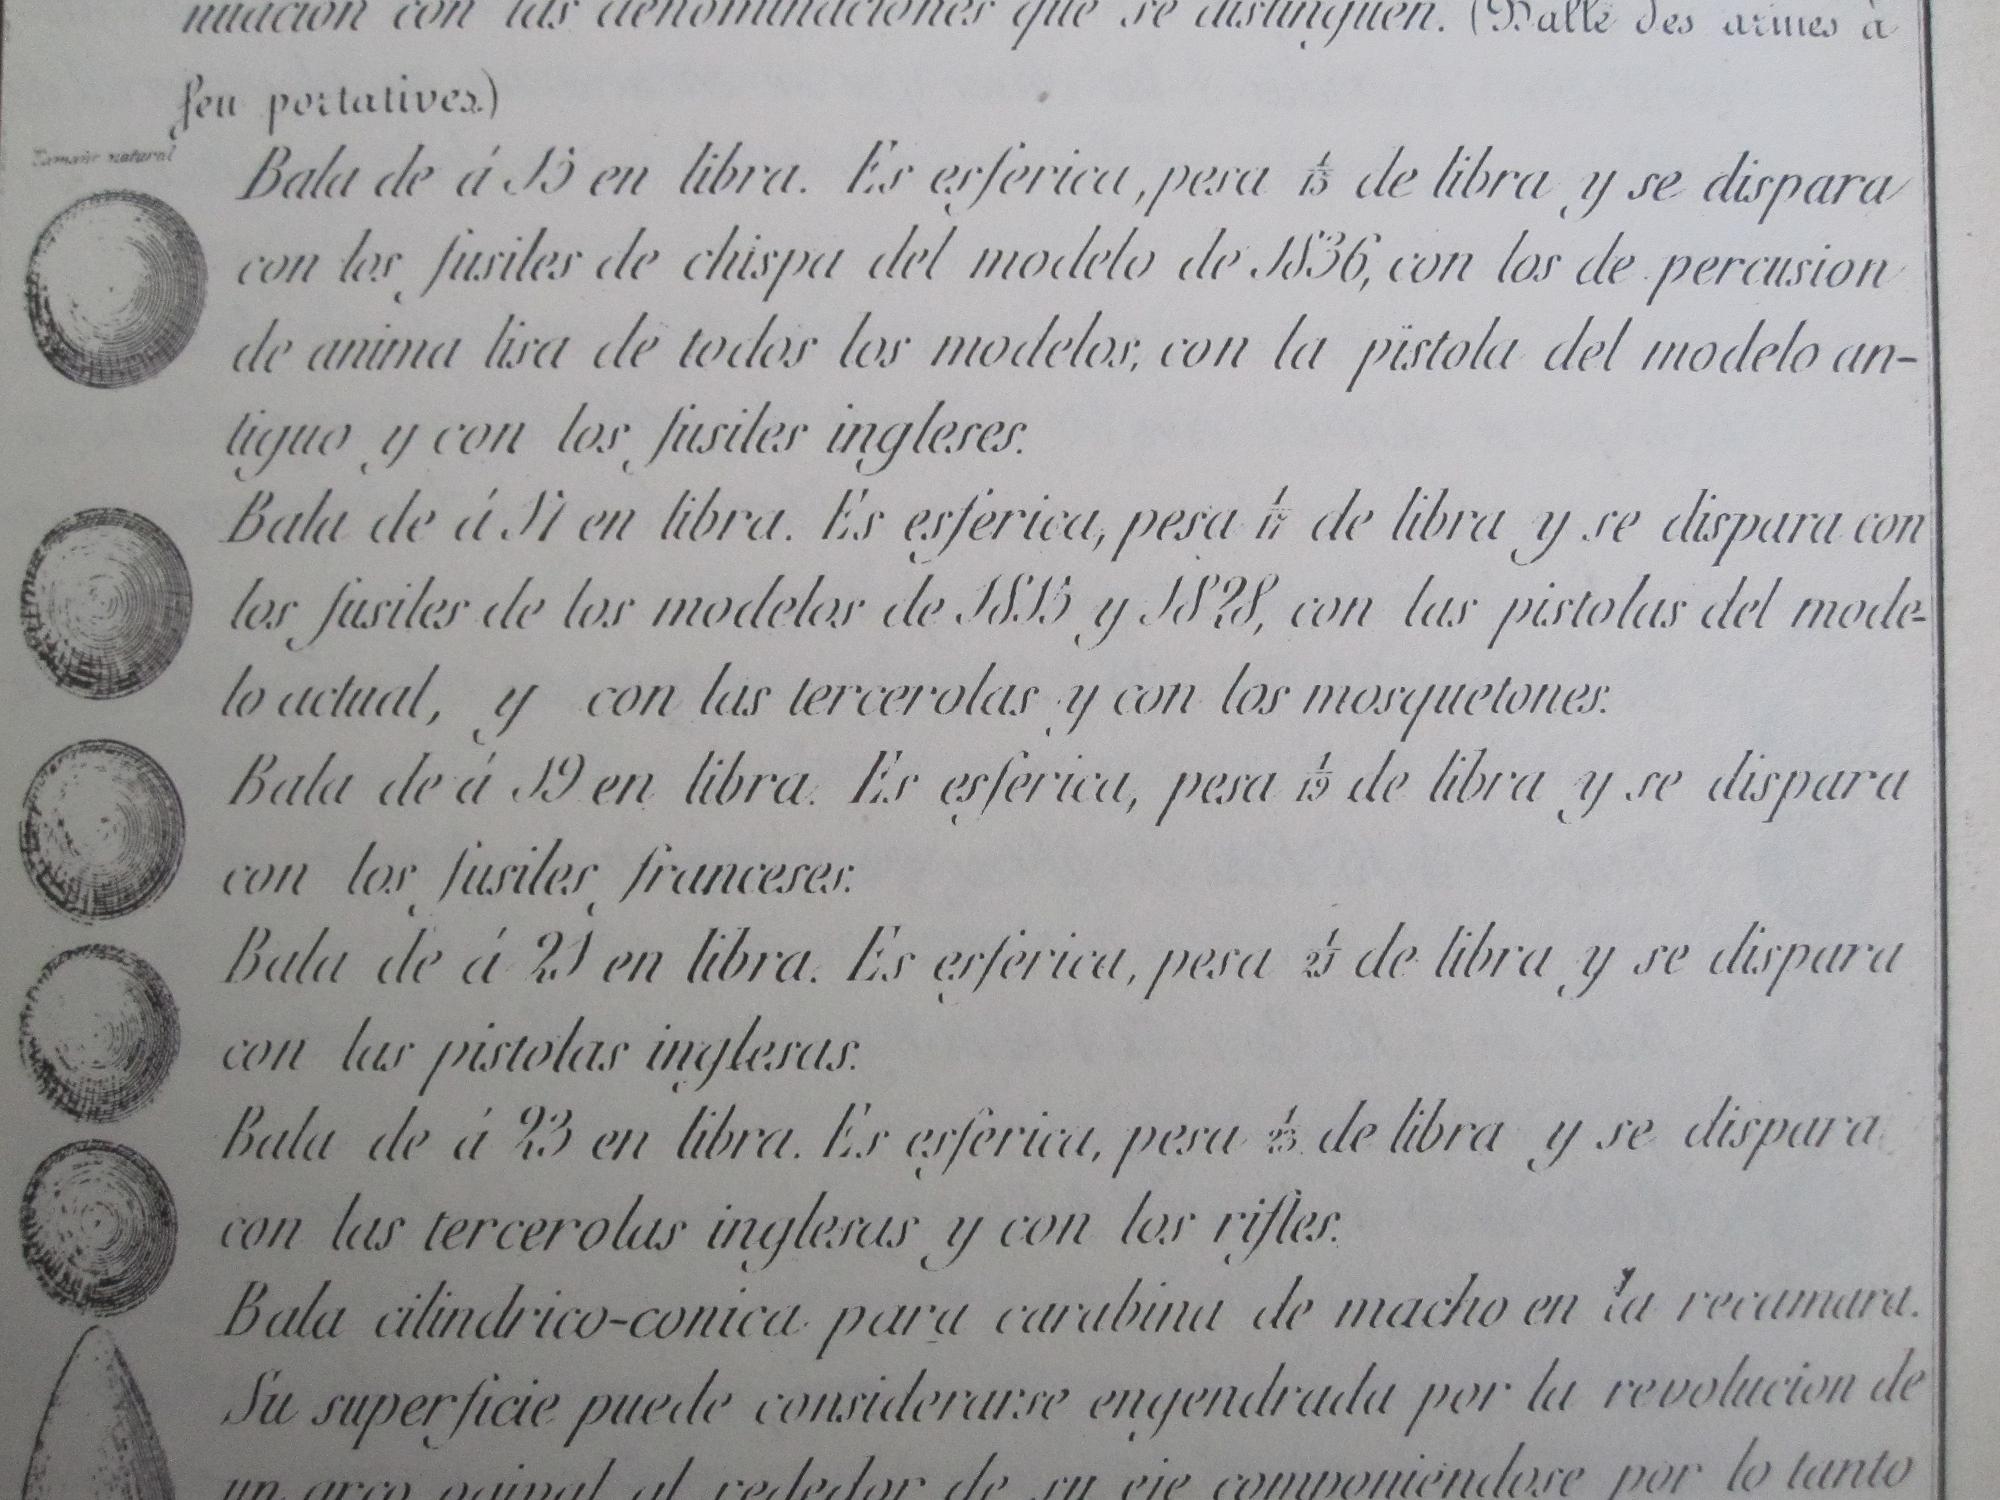 nuacion con las denominaciones que se distinguen. (Balle des armes à
feu portatives.)
Tamaño natural
Bala de á 15 en libra. Es esférica, pesa 1/15 de libra y se dispara
con los fusiles de chispa del modelo de 1836, con los de percusion
de anima lisa de todos los modelos, con la pistola del modelo an-
tiguo y con los fusiles ingleses.
Bala de á 17 en libra. Es esférica, pesa 1/17 de libra y se dispara con
los fusiles de los modelos de 1815 y 1828, con las pistolas del mode-
lo actual, y con las tercerolas y con los mosquetones.
Bala de á 19 en libra. Es esférica, pesa 1/19 de libra y se dispara
con los fusiles franceses.
Bala de á 21 en libra. Es esférica, pesa 1/21 de libra y se dispara
con las pistolas inglesas.
Bala de á 23 en libra. Es esférica, pesa 1/23 de libra y se dispara
con las tercerolas inglesas y con los rifles.
Bala cilindrico-conica para carabina de macho en la recamara.
Su superficie puede considerarse engendrada por la revolucion de
un arco ogival al rededor de su eje componiéndose por lo tanto